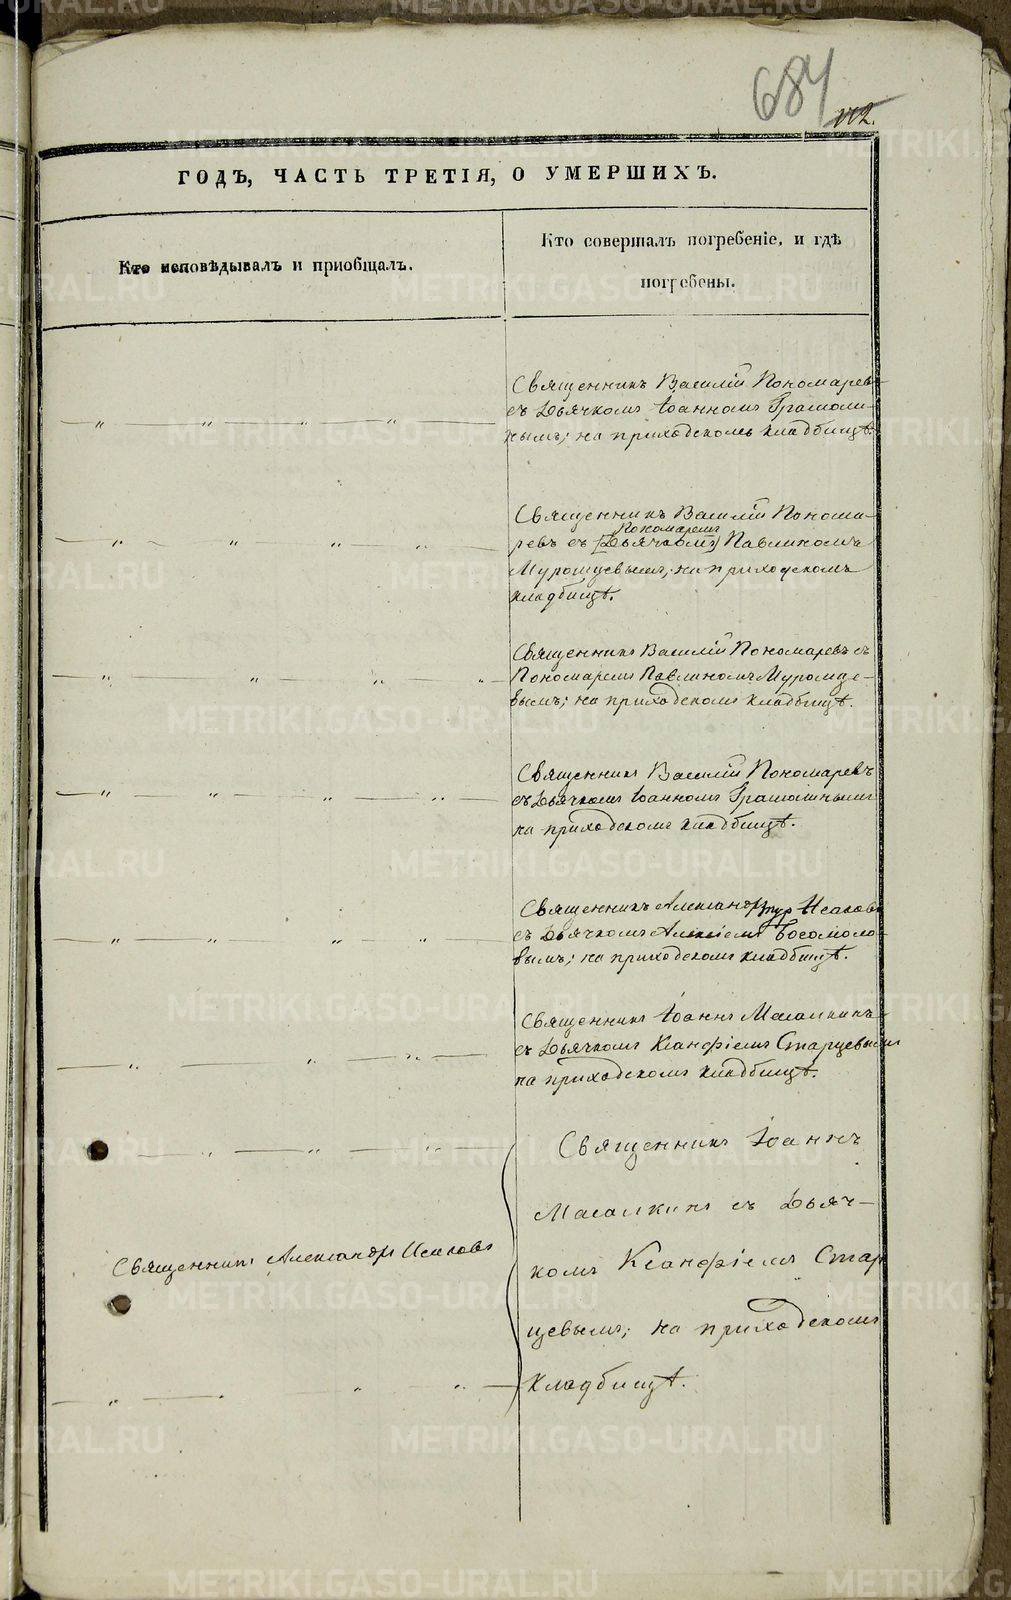 684
112.
ГОДЪ, ЧАСТЬ ТРЕТІЯ, О УМЕРШИХЪ.
Кто исповѣдывалъ и пріобщалъ.
Кто совершалъ погребеніе, и гдѣ
погребены.
Священникъ Василій Пономаревъ
съ Дьячкомъ Іоанномъ Грамоли-
нымъ; на приходскомъ кладбищѣ.
Священникъ Василій Понома-
Пономаремъ
ревъ съ (Дьячкомъ) Павлиномъ
Муромцевымъ; на приходскомъ
кладбищѣ.
Священникъ Василій Пономаревъ съ
Пономаремъ Павлиномъ Муромце-
вымъ; на приходскомъ кладбищѣ.
Священникъ Василій Пономаревъ
съ Дьячкомъ Іоанномъ Грамолинымъ
на приходскомъ кладбищѣ.
Священникъ Александръ Исаковъ
съ Дьячкомъ Алексіемъ Богомоло-
вымъ; на приходскомъ кладбищѣ.
Священникъ Іоаннъ Масалкинъ
съ Дьячкомъ Ксанфіемъ Старцевымъ
на приходскомъ кладбищѣ.
Священникъ Іоаннъ
Масалкинъ съ Дьяч-
комъ Ксанфіемъ Стар
цевымъ; на приходскомъ
кладбищѣ.
Священникъ Александръ Исаковъ
METRIKI.GASO-URAL.RU